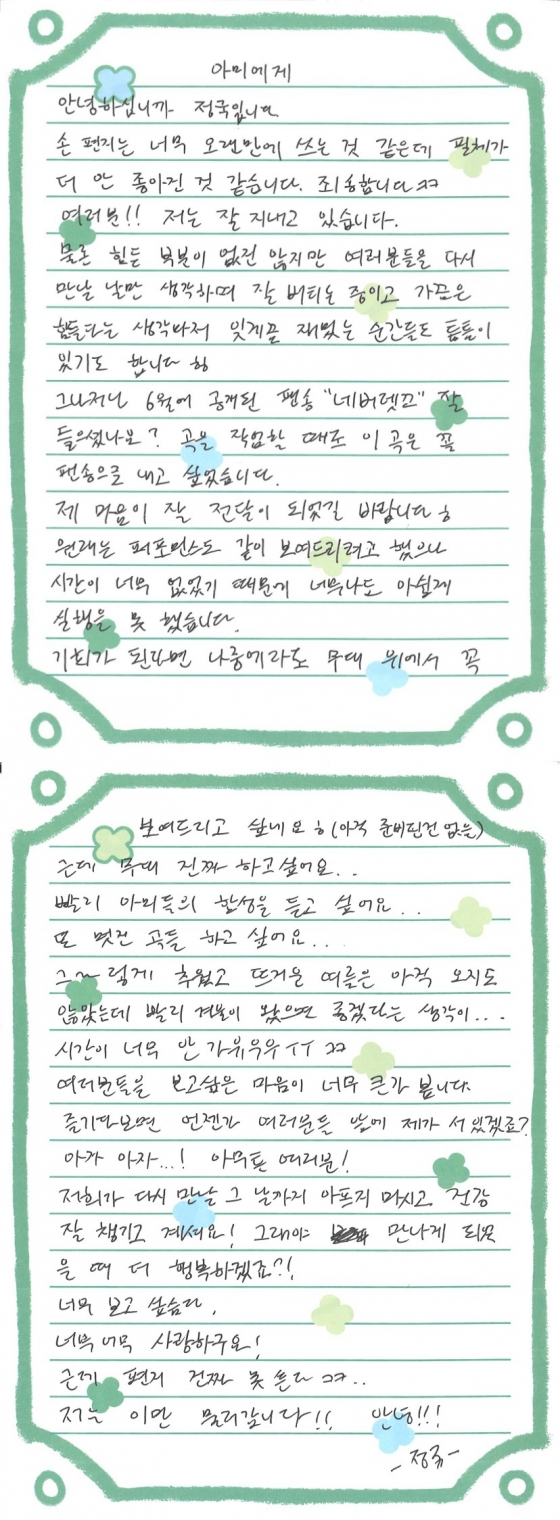 아미에게
안녕하십니까 정국입니다
손 편지는 너무 오랜만에 쓰는 것 같은데 필체가
더 안 좋아진 것 같습니다. 죄송합니다ㅋㅋ
여러분!! 저는 잘 지내고 있습니다.
물론 힘든 부분이 없진 않지만 여러분들을 다시
만날 날만 생각하며 잘 버티는 중이고 가끔은
힘들다는 생각마저 잊게끔 재밌는 순간들도 틈틈이
있기도 합니다 ㅎㅎ
그나저나 6월에 공개된 팬송 "네버렛고" 잘
들으셨나요? 곡을 작업할 때도 이 곡은 꼭
팬송으로 내고 싶었습니다.
제 마음이 잘 전달이 되었길 바랍니다 ㅎ
원래는 퍼포먼스도 같이 보여드리려고 했으나
시간이 너무 없었기 때문에 너무나도 아쉽게
실행을 못 했습니다.
기회가 된다면 나중에라도 무대 위에서 꼭
보여드리고 싶네요 ㅎ (아직 준비된건 없음)
근데 무대 진짜 하고싶어요..
빨리 아미들의 함성을 듣고 싶어요...
또 멋진 곡들 하고 싶어요...
그~렇게 추웠고 뜨거운 여름은 아직 오지도
않았는데 빨리 겨울이 왔으면 좋겠다는 생각이...
시간이 너무 안 가유우우 ㅜㅜ ㅋㅋ
여러분들을 보고싶은 마음이 너무 큰가 봅니다.
즐기다보면 언젠간 여러분들 앞에 제가 서 있겠죠?
아자 아자...! 아무튼 여러분!
저희가 다시 만날 그 날까지 아프지 마시고 건강
잘 챙기고 계세요! 그래야 만나게 되었
을 때 더 행복하겠죠?!
너무 보고 싶습다.
너무너무 사랑하구요!
근데 편지 진짜 못 쓴다 ㅋㅋ..
저는 이만 물러갑니다!! 안녕!!!
-정국-